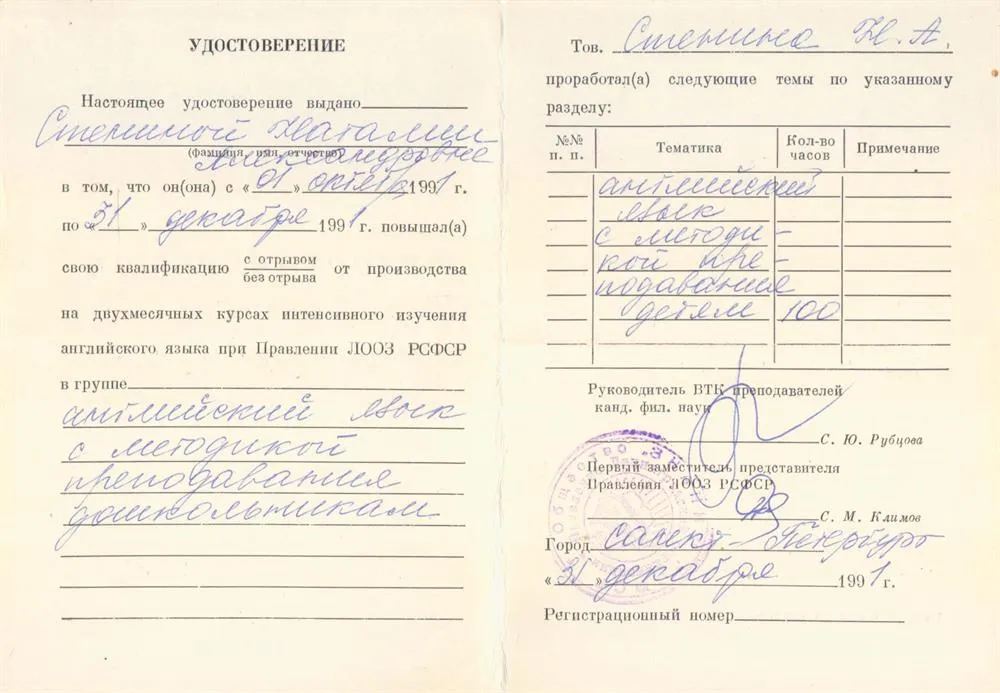 УДОСТОВЕРЕНИЕ
Настоящее удостоверение выдано
Стениной Наталии
(фамилия, имя, отчество)
Александровне
в том, что он(она) с «01» октября 1991 г.
по «31» декабря 1991 г. повышал(а)
свою квалификацию с отрывом
без отрыва от производства
на двухмесячных курсах интенсивного изучения
английского языка при Правлении ЛООЗ РСФСР
в группе
английский язык
с методикой
преподавания
дошкольникам
Тов. Стенина Н. А.
проработал(а) следующие темы по указанному
разделу:
№№ п. п. Тематика Кол-во часов Примечание
английский
язык
с методи-
кой пре-
подавания
детям 100
Руководитель ВТК преподавателей
канд. фил. наук
С. Ю. Рубцова
Первый заместитель представителя
Правления ЛООЗ РСФСР
С. М. Климов
Город Санкт-Петербург
«31» декабря 1991 г.
Регистрационный номер